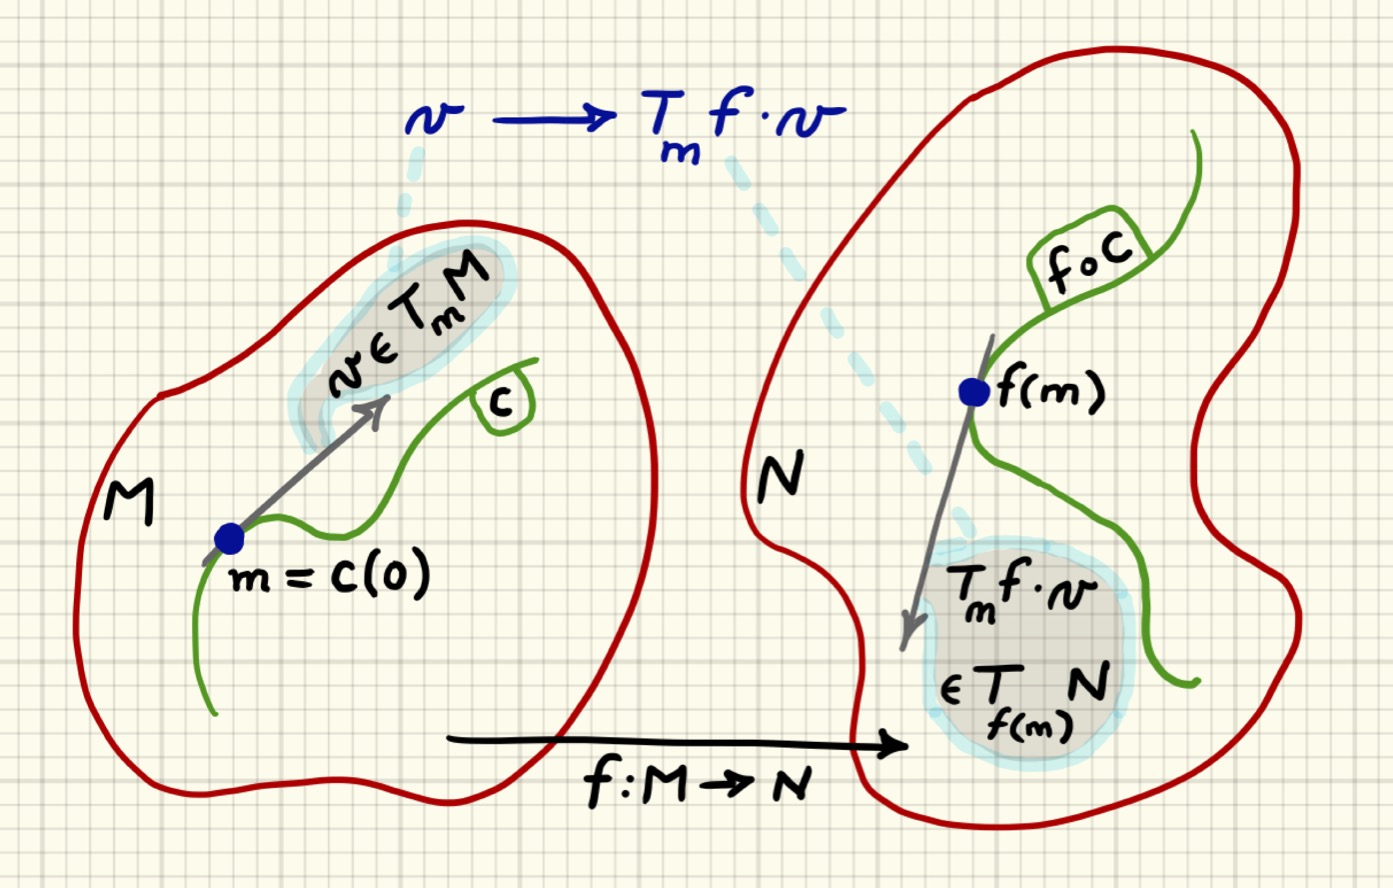 v → T_m f · v
v ∈ T_m M
c
M
m = c(0)
f ∘ c
f(m)
N
T_m f · v
∈ T_f(m) N
f : M → N